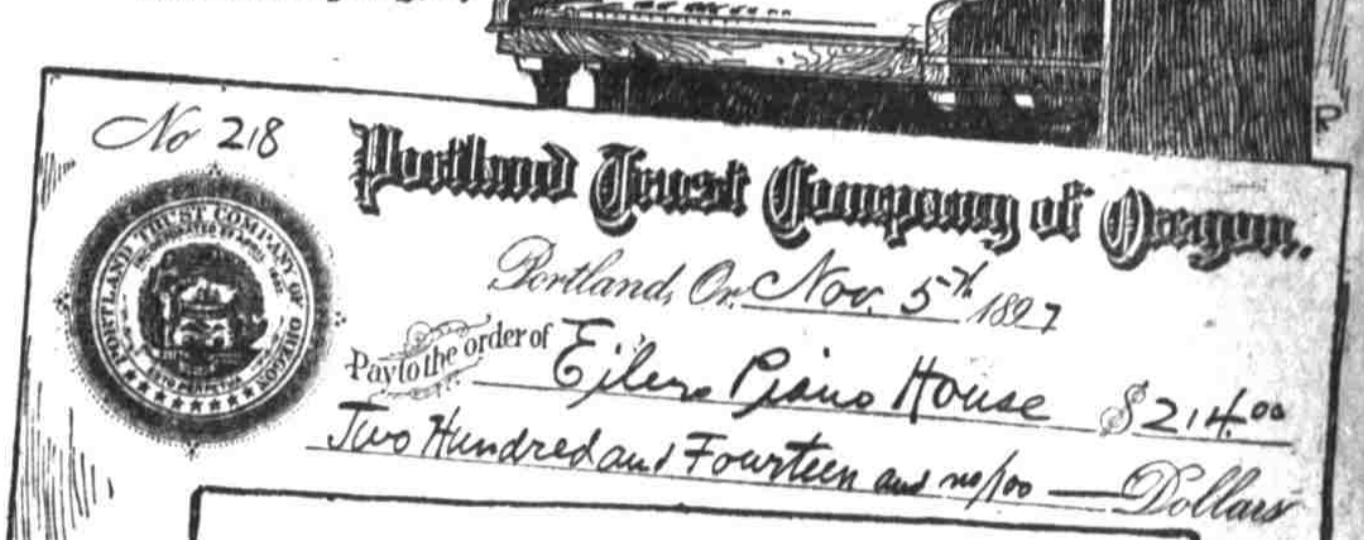 No 218
Portland Trust Company of Oregon.
PORTLAND TRUST COMPANY OF OREGON
Portland, Or. Nov. 5th 1897
Pay to the order of Eilers Piano House $214.00
Two Hundred and Fourteen and no/100 — Dollars